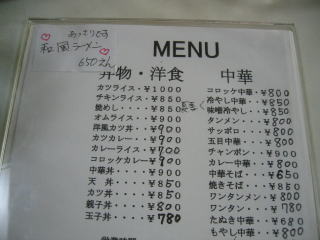 あっさりです
和風ラーメン
650えん
MENU
丼物・洋食
カツライス・・¥1000
チキンライス・¥850
焼めし・・・・¥850
オムライス・・¥900
洋風カツ丼・・¥900
カツカレー・・¥900
カレーライス・¥700
コロッケカレー¥900
中華丼・・・・¥900
天丼・・・・・¥850
カツ丼・・・・¥850
親子丼・・・・¥800
玉子丼・・・・¥780
中華
コロッケ中華・・¥800
冷やし中華・・・¥850
味噌冷やし・・・¥850
タンメン・・・・¥800
サッポロ・・・・¥800
五目中華・・・・¥800
チャンポン・・・¥900
カレー中華・・・¥800
中華そば・・・・¥650
焼きそば・・・・¥850
ワンタンメン・・¥800
ワンタン・・・・¥780
たぬき中華・・・¥680
もやし中華・・・¥800